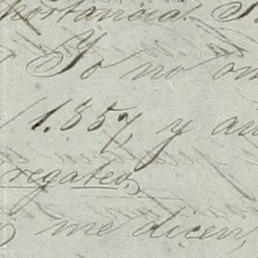 portancia.
Yo no om
1.357, y au
regateo,
me dicen,